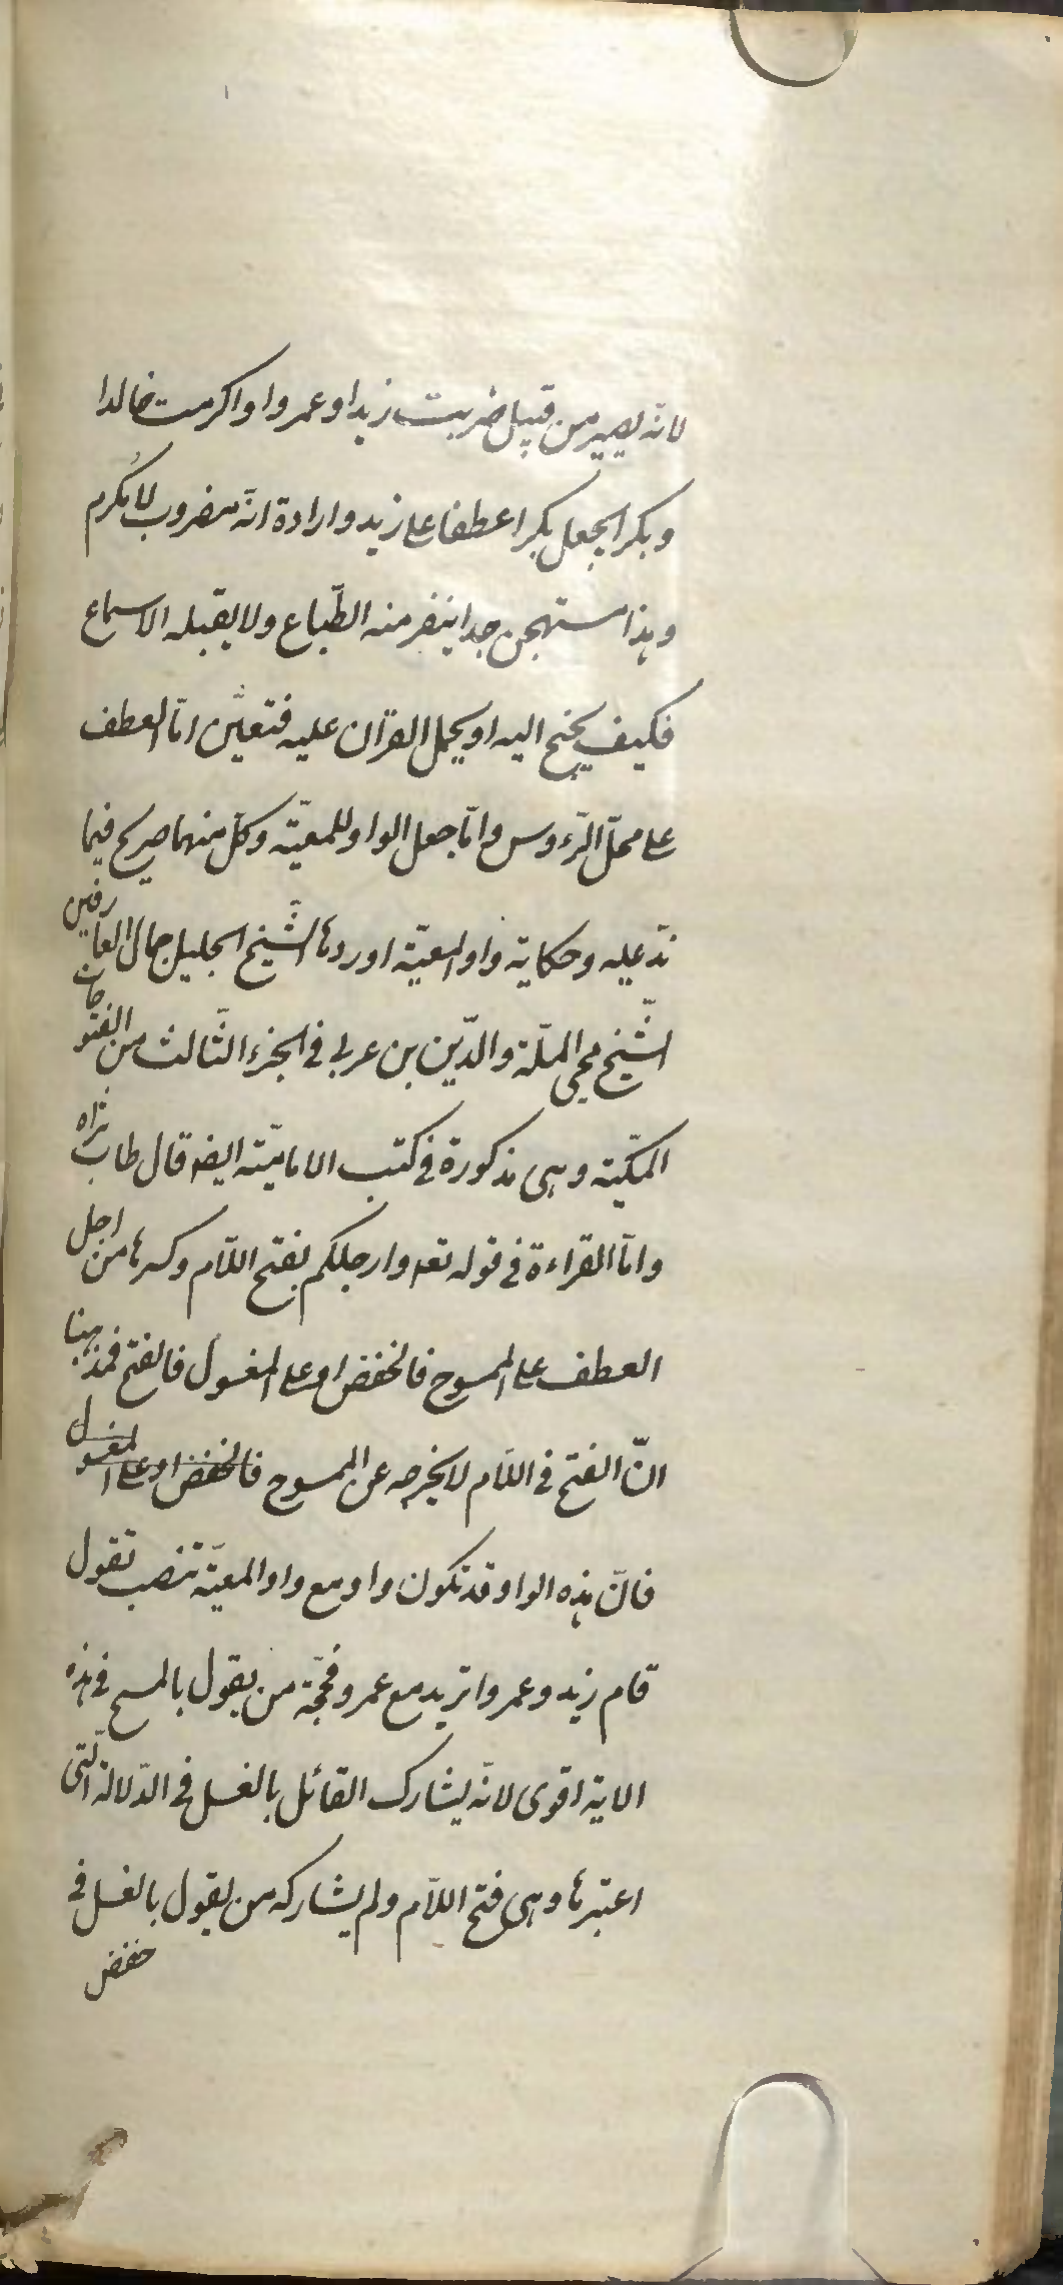 لانّه يصير من قبيل ضربت زيدا وعمروا واكرمت خالدا
وبكرا بجعل بكرا عطفا على زيد وارادة انّه مضروب لا مُكرم
وهذا مستهجن جدا ينفر منه الطّباع ولا يقبله الاسماع
فكيف يجنح اليه او يحمل القرآن عليه فتعيّن امّا العطف
على محلّ الرّءوس وامّا جعل الواو للمعيّة وكلّ منهما صريح فيما
ندّعيه وحكاية واو المعيّة اوردها الشّيخ الجليل جمال العارفين
الشّيخ محي الملّة والدّين بن عربي في الجزء الثّالث من الفتوحات
المكيّة وهى مذكورة في كتب الاماميّة ايضا قال طاب ثراه
وامّا القراءة في قوله تعه وارجلكم بفتح اللّام وكسرها من اجل
العطف على الممسوح فالخفض او على المغسول فالفتح فمذهبنا
انّ الفتح في اللّام لا يخرجه عن الممسوح فالخفض او على المغسول
فانّ هذه الواو قد تكون واو مع واو المعيّة تنصب تقول
قام زيد وعمروا تريد مع عمرو فحجّة من يقول بالمسح في هذه
الاية اقوى لانّه يشارك القائل بالغسل في الدّلالة الّتى
اعتبرها وهى فتح اللّام ولم يشاركه من يقول بالغسل في
خفض